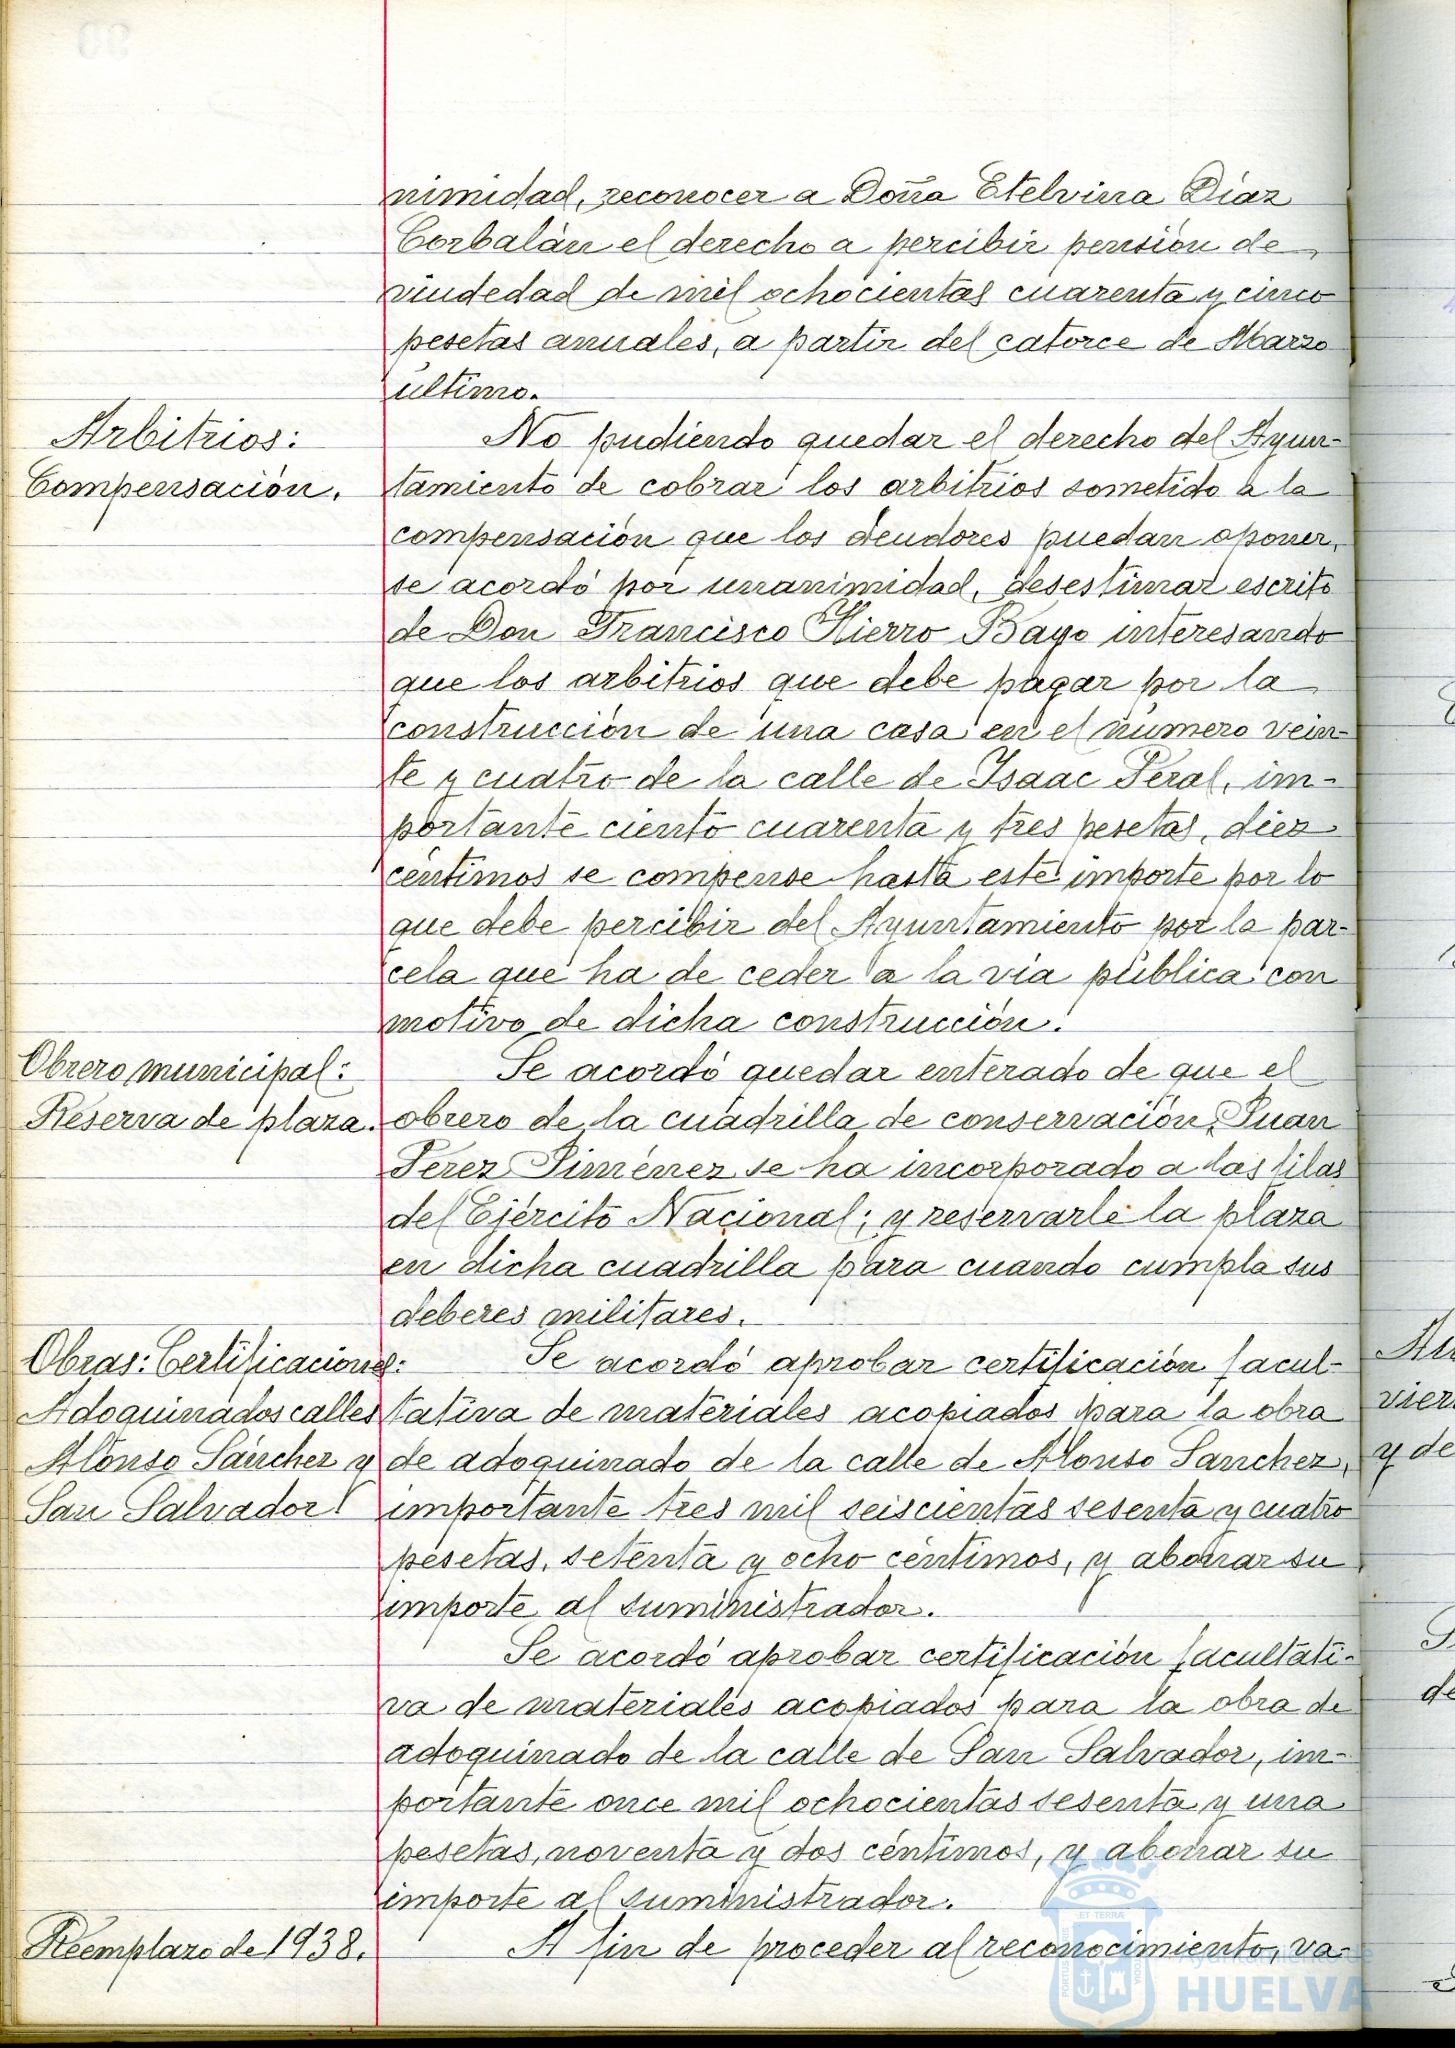 nimidad, reconocer a Doña Etelvina Díaz
Corbalán el derecho a percibir pensión de
viudedad de mil ochocientas cuarenta y cinco
pesetas anuales, a partir del catorce de Marzo
último.
Arbitrios:
Compensación.
No pudiendo quedar el derecho del Ayun-
tamiento de cobrar los arbitrios sometido a la
compensación que los deudores puedan oponer,
se acordó por unanimidad, desestimar escrito
de Don Francisco Hierro Bayo interesando
que los arbitrios que debe pagar por la
construcción de una casa en el número vein-
te y cuatro de la calle de Isaac Peral, im-
portante ciento cuarenta y tres pesetas, diez
céntimos se compense hasta este importe por lo
que debe percibir del Ayuntamiento por la par-
cela que ha de ceder a la vía pública con
motivo de dicha construcción.
Obrero municipal:
Reserva de plaza.
Se acordó quedar enterado de que el
obrero de la cuadrilla de conservación, Juan
Pérez Jiménez se ha incorporado a las filas
del Ejército Nacional; y reservarle la plaza
en dicha cuadrilla para cuando cumpla sus
deberes militares.
Obras: Certificaciones:
Adoquinados calles
Alonso Sánchez y
San Salvador.
Se acordó aprobar certificación facul-
tativa de materiales acopiados para la obra
de adoquinado de la calle de Alonso Sanchez,
importante tres mil seiscientas sesenta y cuatro
pesetas, setenta y ocho céntimos, y abonar su
importe al suministrador.
Se acordó aprobar certificación facultati-
va de materiales acopiados para la obra de
adoquinado de la calle de San Salvador, im-
portante once mil ochocientas sesenta y una
pesetas, noventa y dos céntimos, y abonar su
importe al suministrador.
Reemplazo de 1938.
A fin de proceder al reconocimiento, va-
Ayuntamiento de
HUELVA